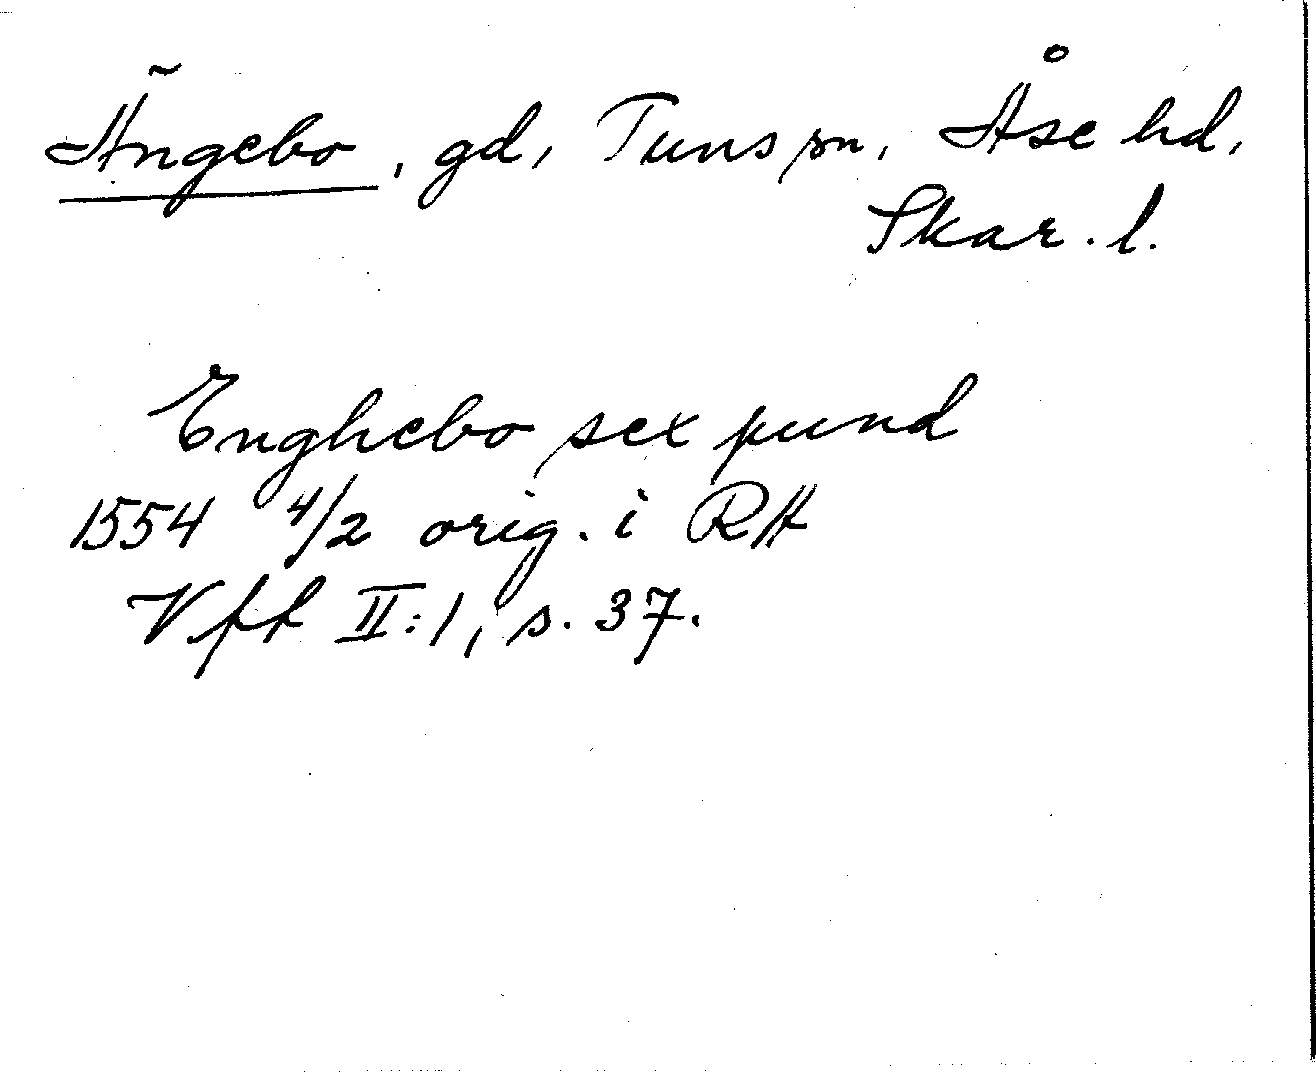 Ängebo, gd, Tuns sn, Åse hd,
Skar. l.
Enghebo sex pund
1554 4/2 orig. i RA
Vff II:1, s. 37.